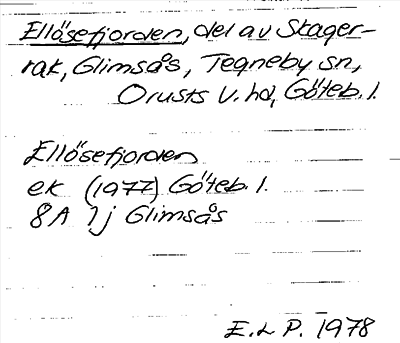 Ellösefjorden, del av Skager-
rak, Glimsås, Tegneby sn,
Orusts V. hd, Göteb. l.
Ellösefjorden
ek (1977) Göteb. l.
8A 1j Glimsås
E. L P. 1978